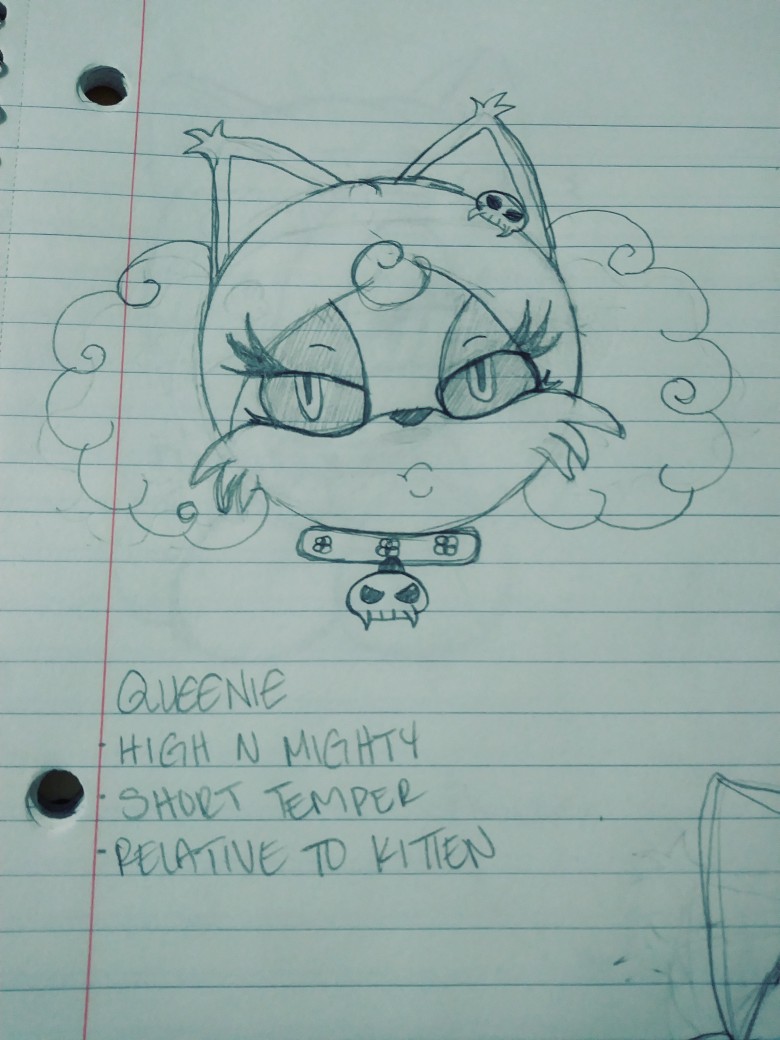 QUEENIE
- HIGH N MIGHTY
- SHORT TEMPER
- RELATIVE TO KITTEN